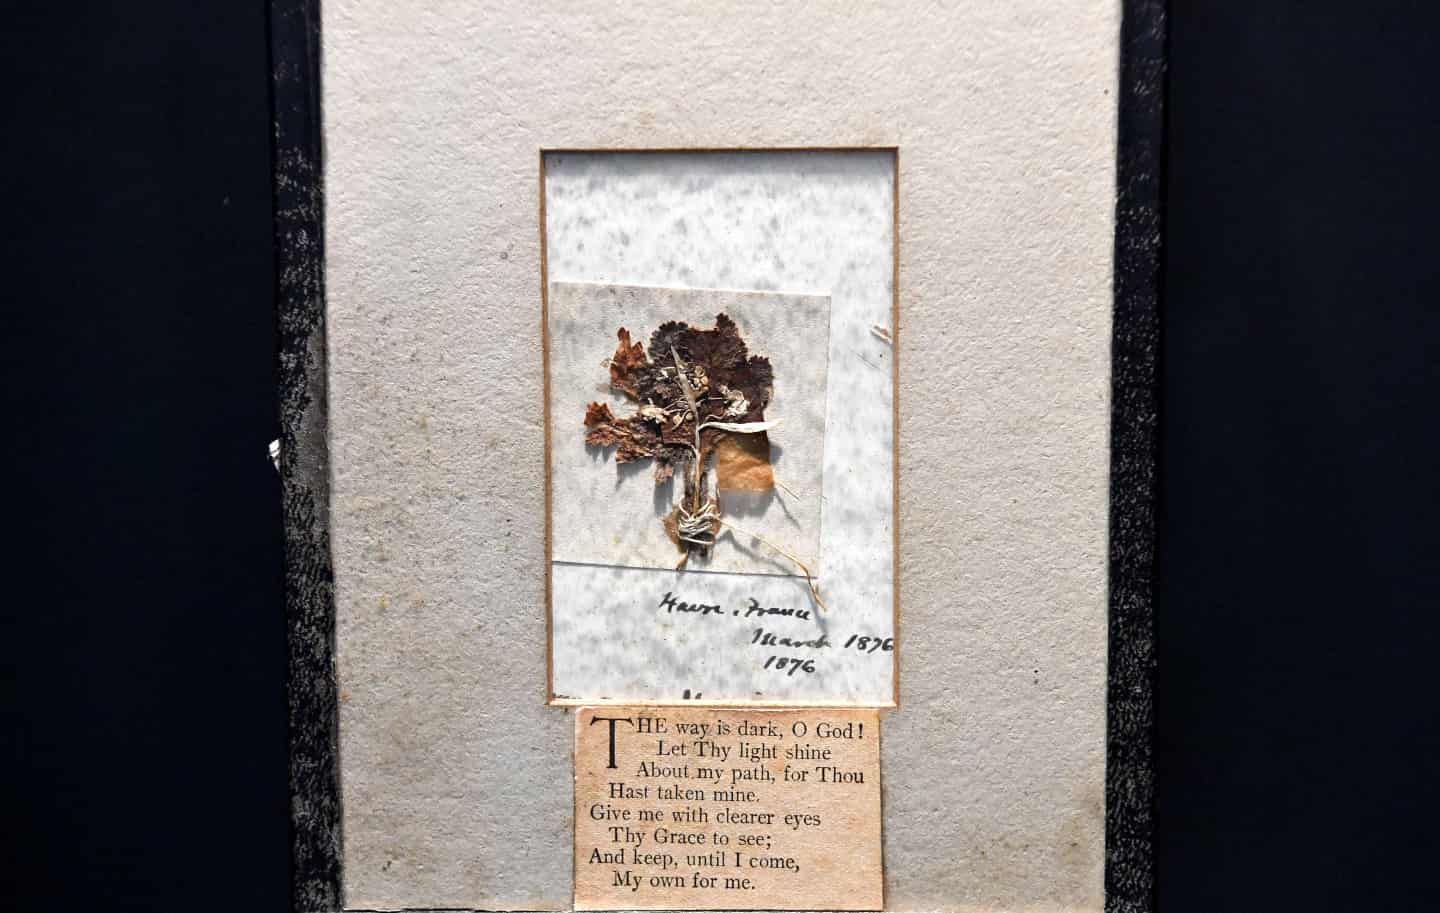 Havre, France
March 1876
1876
THE way is dark, O God!
Let Thy light shine
About my path, for Thou
Hast taken mine.
Give me with clearer eyes
Thy Grace to see;
And keep, until I come,
My own for me.